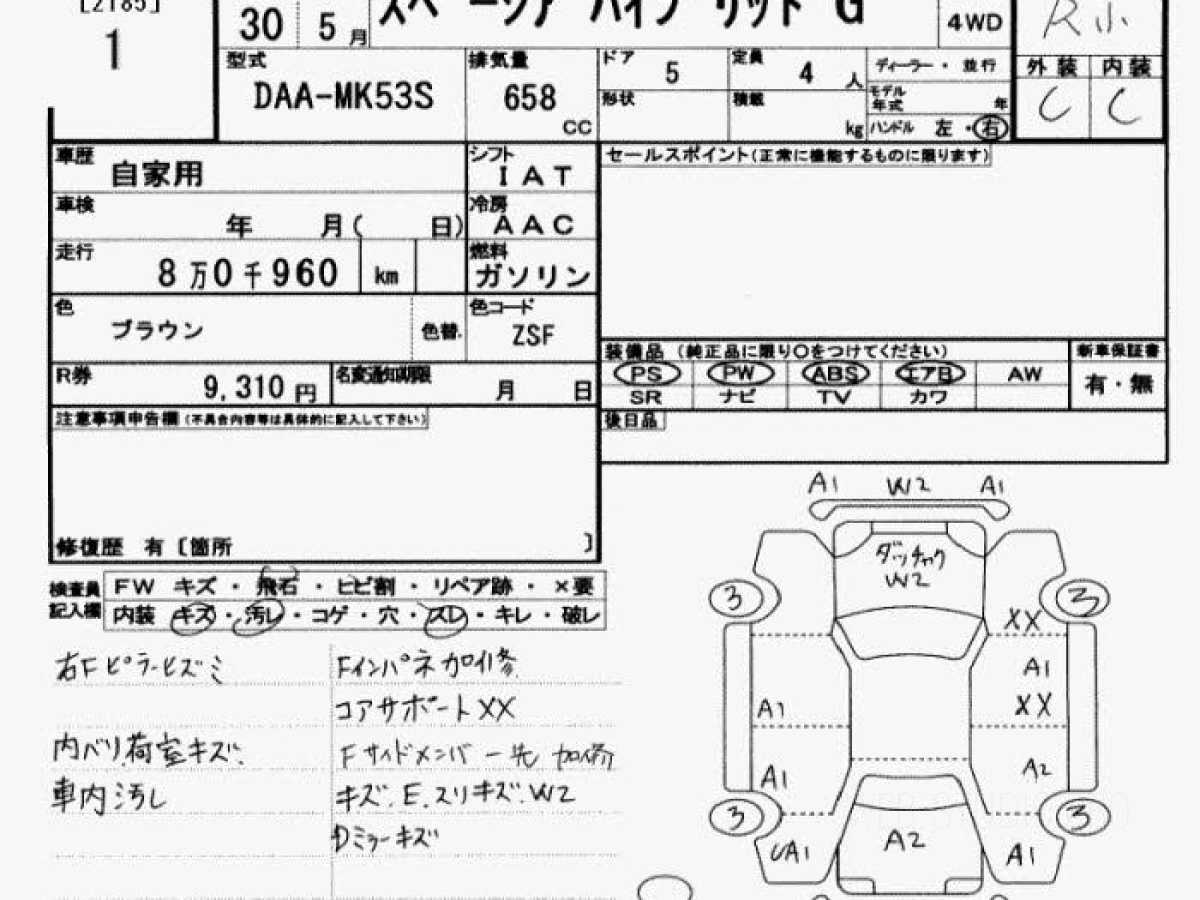 [2185]
1
30 5月
スペーシア ハイブリッド G
4WD
R小
型式
DAA-MK53S
排気量
658
CC
ドア 5
定員 4 人
形状
積載
kg
ディーラー・並行
モデル年式 年
ハンドル 左・右
外装 内装
C C
車歴 自家用
シフト
IAT
車検
年 月( 日)
冷房
AAC
走行
8万0千960 km
燃料
ガソリン
色
ブラウン
色替
色コード
ZSF
R券
9,310 円
名変通知期限
月 日
セールスポイント(正常に機能するものに限ります)
装備品 (純正品に限り〇をつけてください)
新車保証書
PS PW ABS エアB AW
有・無
SR ナビ TV カワ
後日品
注意事項申告欄(不具合内容等は具体的に記入して下さい)
修復歴 有〔箇所 〕
検査員記入欄
FW キズ・飛石・ヒビ割・リペア跡・×要
内装 キズ・汚レ・コゲ・穴・スレ・キレ・破レ
右Fピラーヒズミ
Fインパネ加修
コアサポートXX
内ベリ.荷室キズ.
Fサイドメンバー先 加修
車内汚レ
キズ.E.スリキズ.W2
Dミラーキズ
A1 W2 A1
W2
3 3
XX
A1
A1 XX
A1 A2
3 3
A2
A1 A1